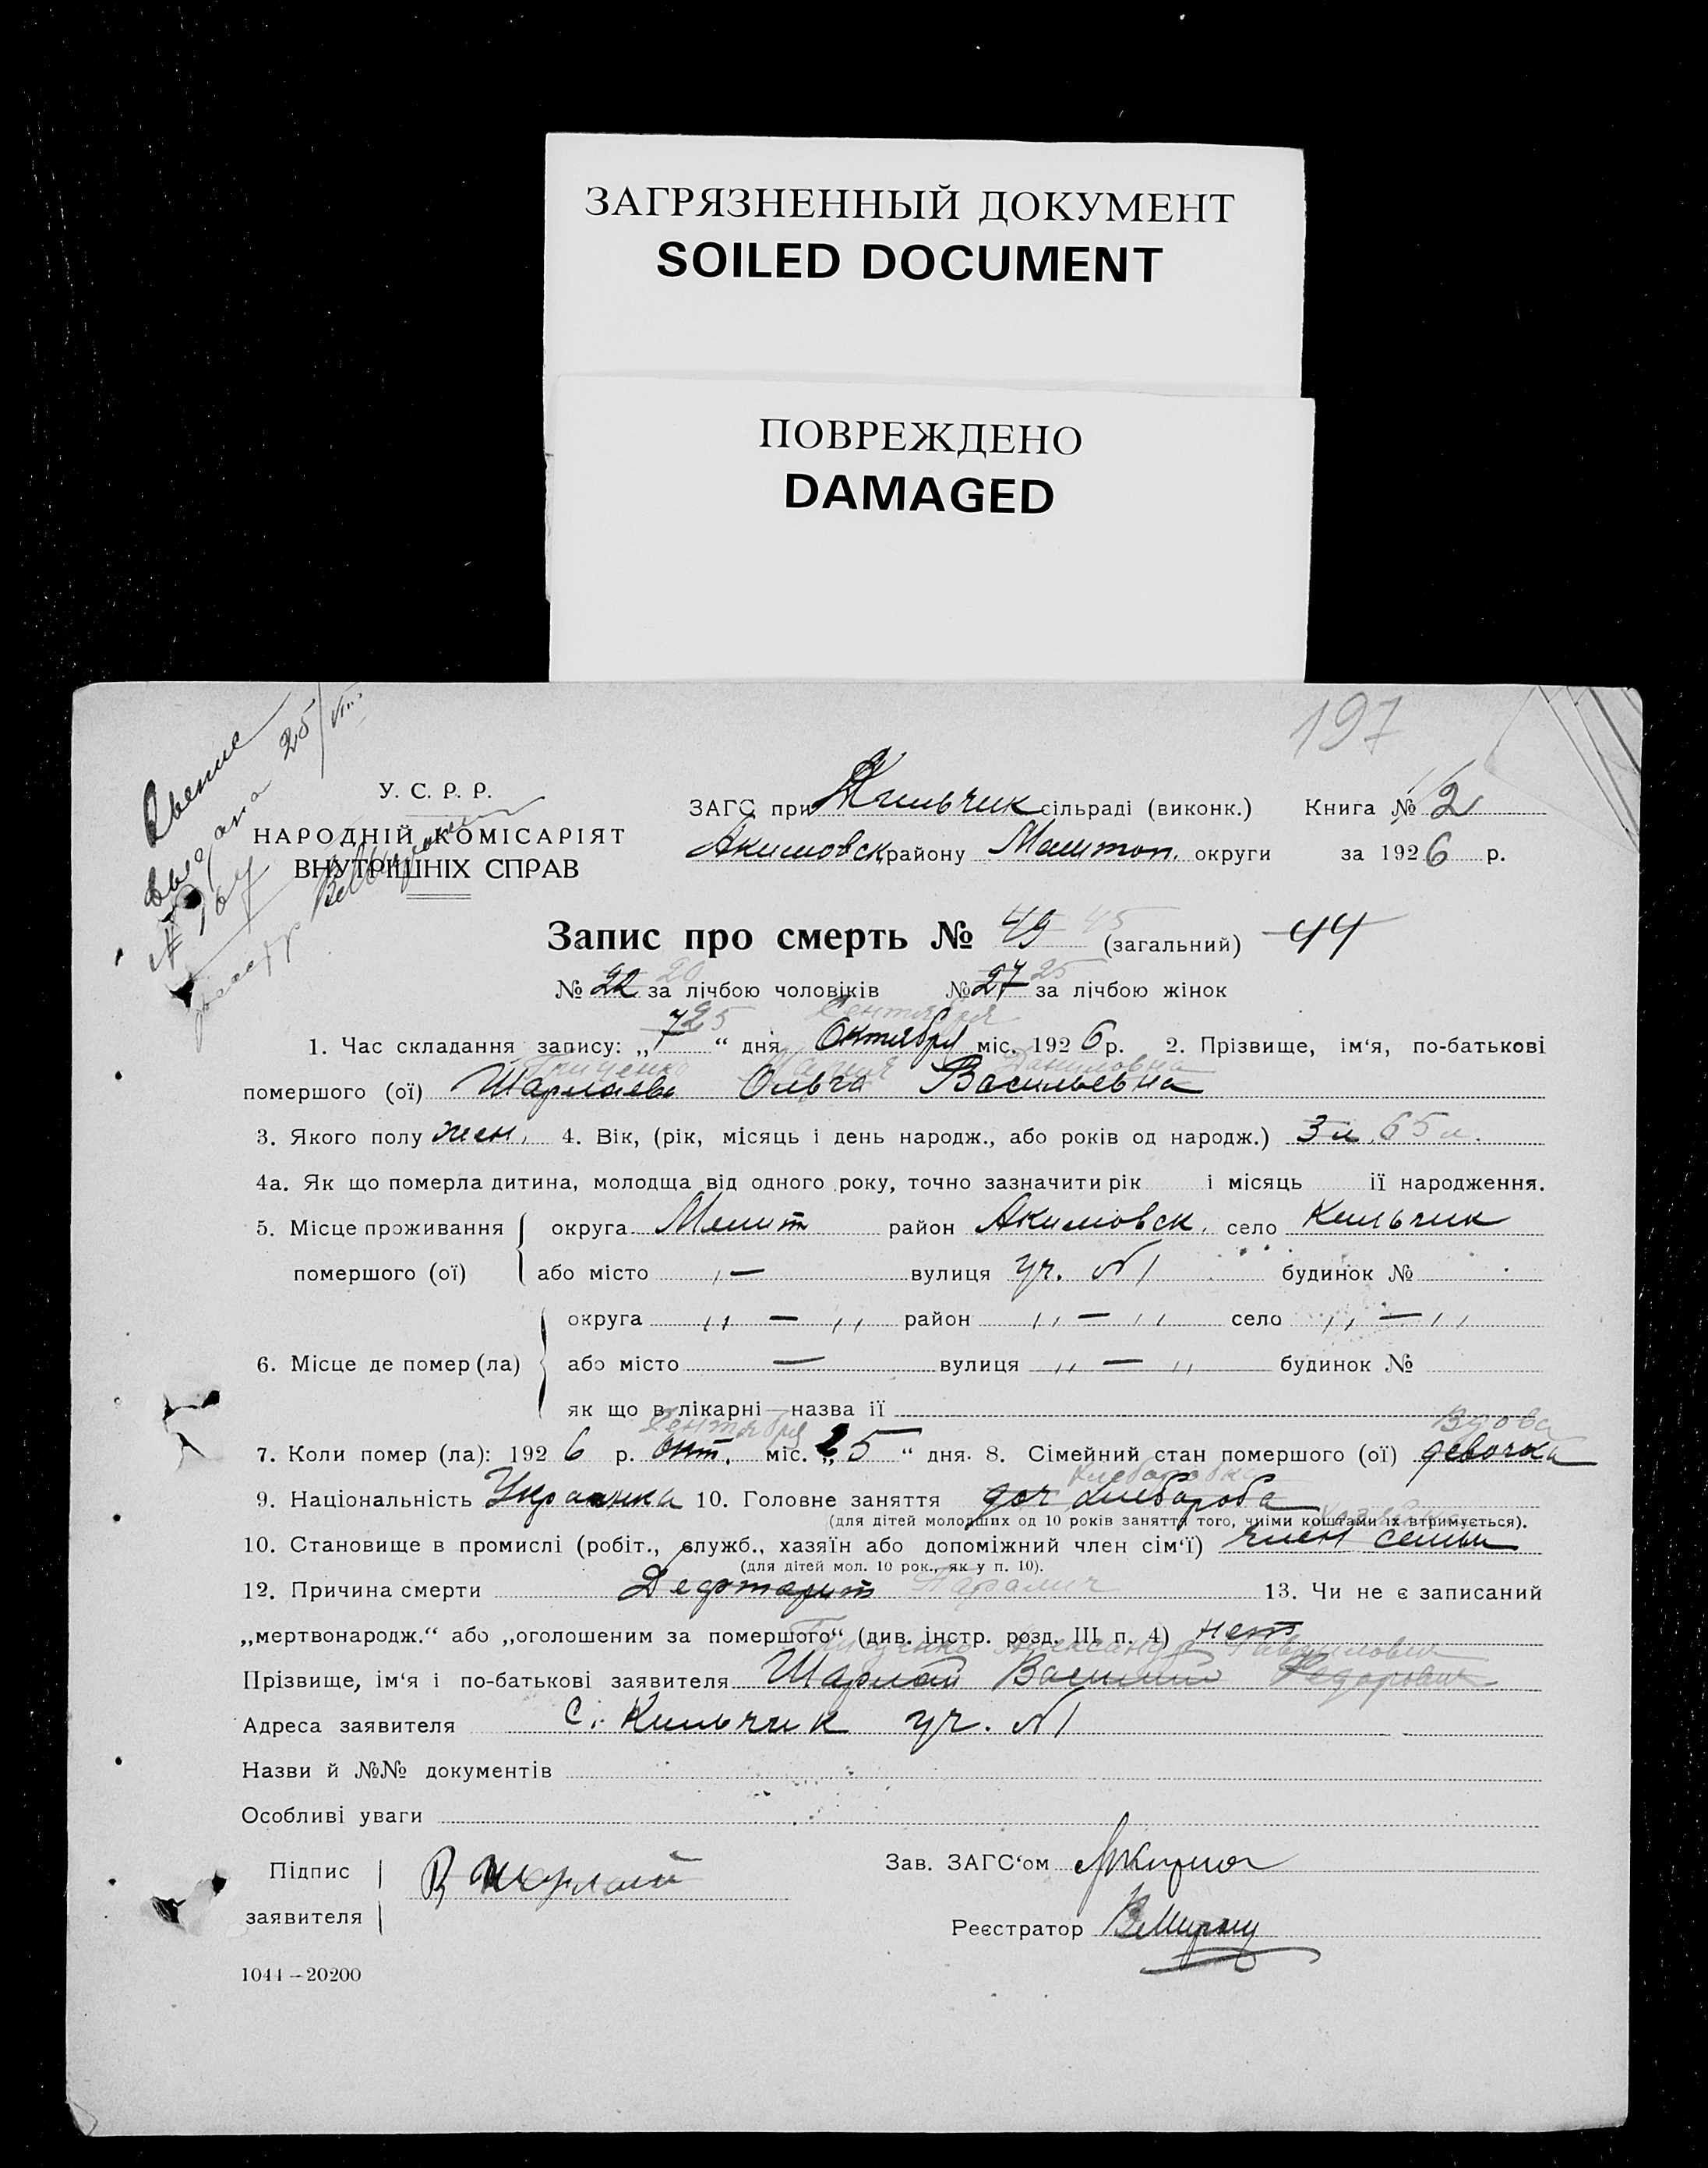 ЗАГРЯЗНЕННЫЙ ДОКУМЕНТ
SOILED DOCUMENT
ПОВРЕЖДЕНО
DAMAGED
197
25/VIII
У. С. Р. Р.
НАРОДНІЙ КОМІСАРІЯТ
ВНУТРІШНІХ СПРАВ
ЗАГС при Кильчик сільраді (виконк.) Книга № 2
Акимовск. району Мелитоп. округи за 1926 р.
Запис про смерть № 49 45 (загальний) 44
№ 22 20 за лічбою чоловіків № 27 25 за лічбою жінок
Сентября
1. Час складання запису: „7 25“ дня Октября міс. 1926 р. 2. Прізвище, ім‘я, по-батькові
Гриценко Мария Даниловна
помершого (ої) Шарлаева Ольга Васильевна
3. Якого полу жен. 4. Вік, (рік, місяць і день народж., або років од народж.) 3 л. 65 л.
4а. Як що померла дитина, молодща від одного року, точно зазначити рік і місяць її народження.
5. Місце проживання округа Мелит район Акимовск. село Кильчик
помершого (ої) або місто — вулиця уч. №1 будинок №
округа „ — „ район „ — „ село „ — „
6. Місце де помер (ла) або місто — вулиця „ — „ будинок №
як що в лікарні—назва її
Сентября Вдова
7. Коли помер (ла): 1926 р. окт. міс. „25“ дня. 8. Сімейний стан помершого (ої) девочка
9. Національність Украинка 10. Головне заняття доч хлебороба
(для дітей молодших од 10 років заняття того, чиїми коштами їх втримується).
10. Становище в промислі (робіт., служб., хазяїн або допоміжний член сім‘ї) член семьи
(для дітей мол. 10 рок., як у п. 10).
12. Причина смерти Дефтерит Паралич 13. Чи не є записаний
„мертвонародж.“ або „оголошеним за помершого“ (див. інстр. розд. III п. 4) нет
Гриценко Александр
Прізвище, ім‘я і по-батькові заявителя Шарлай Василий Федорович
Адреса заявителя с. Кильчик уч. №1
Назви й №№ документів
Особливі уваги
Підпис заявителя В Шарлай
Зав. ЗАГС‘ом
Реєстратор
1041—20200